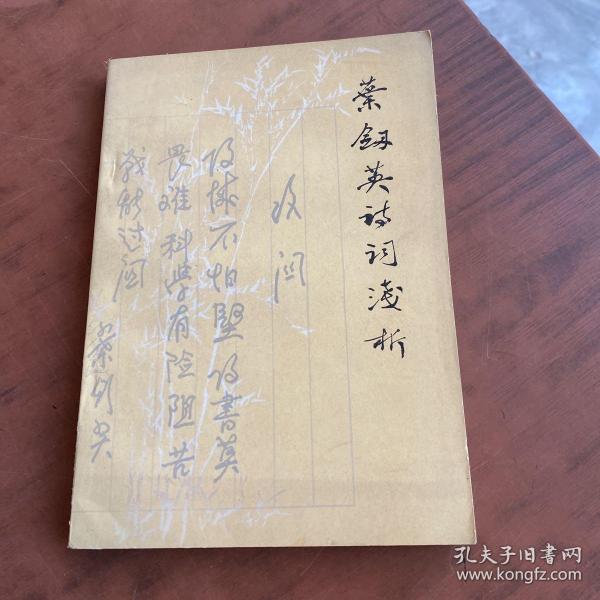 葉劍英詩词淺析
攻関
攻城不怕堅 攻書莫
畏难 科学有险阻 苦
战能过関
葉剑英
孔夫子旧书网
www.kongfz.com